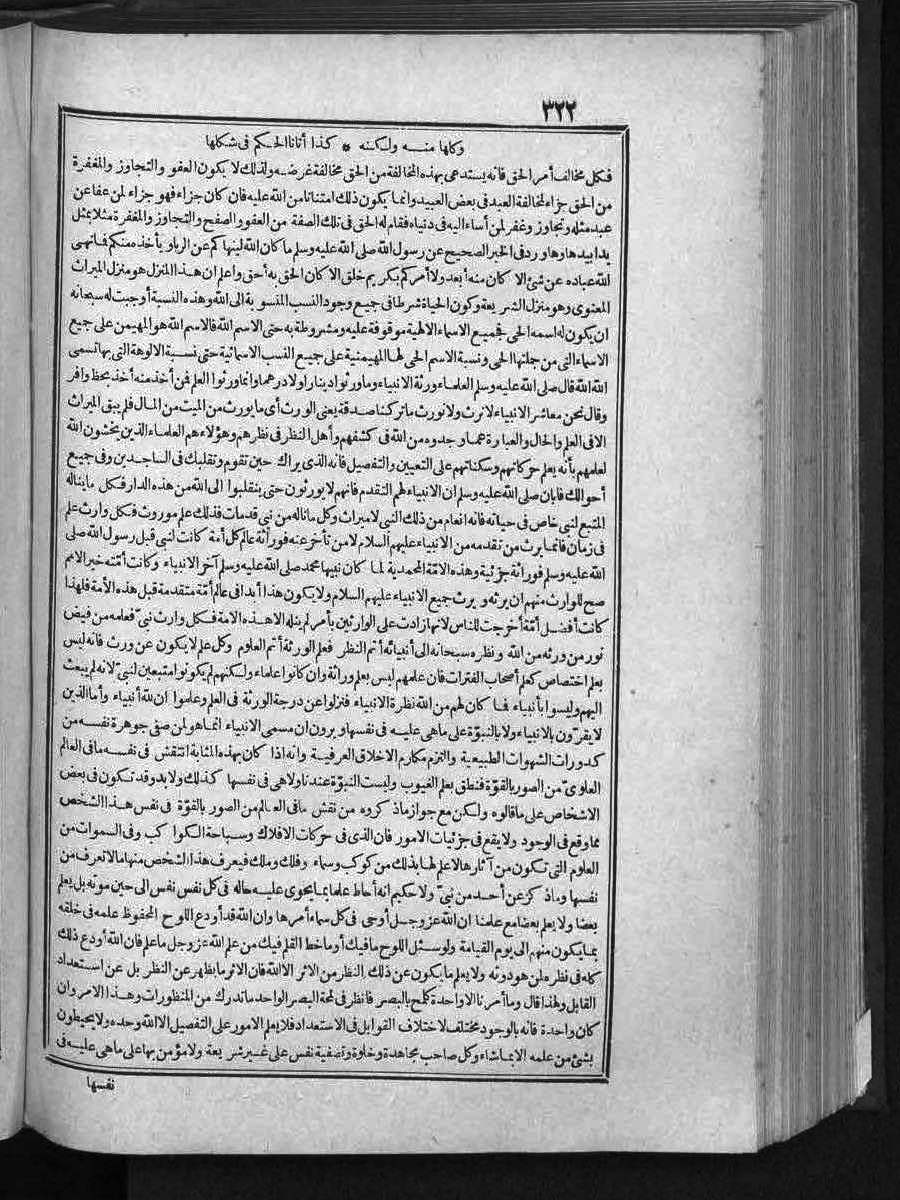 ٣٢٢
وكلها منه ولكنه * كذا أتانا الحكم فى شكلها
فكل مخالف أمر الحق فانه يستدعى بهذه المخالفة من الحق مخالفة غرضه ولذلك لا يكون العفو والتجاوز والمغفرة
من الحق جزاء لمخالفة العبد فى بعض العبيد وانما يكون ذلك امتنانا من الله عليه فان كان جزاء فهو جزاء لمن عفا عن
عبد مثله وتجاوز وغفر لمن أساء اليه فى دنياه فقام له الحق فى تلك الصفة من العفو والصفح والتجاوز والمغفرة مثلا بمثل
يدا بيد ها وها ورد فى الخبر الصحيح عن رسول الله صلى الله عليه وسلم ما كان الله لينهاكم عن الربا ويأخذه منكم فانهى
الله عباده عن شئ الا كان منه أبعد ولا أمركم بكريم خلق الا كان الحق به أحق واعلم ان هذا المنزل هو منزل الميراث
المعنوى وهو منزل الشريعة وكون الحياة شرطا فى جميع وجود النسب المنسوبة الى الله وهذه النسبة أوجبت له سبحانه
ان يكون له اسمه الحى فجميع الاسماء الالهية موقوفة عليه ومشروطة به حتى الاسم الله فالاسم الله هو المهيمن على جميع
الاسماء التى من جملتها الحى ونسبة الاسم الحى لها المهيمنية على جميع النسب الاسمائية حتى نسبة الالوهة التى بها تسمى
الله الله قال صلى الله عليه وسلم العلماء ورثة الانبياء وما ورثوا دينارا ولا درهما وانما ورثوا العلم فمن أخذ منه أخذ بحظ وافر
وقال نحن معاشر الانبياء لا نرث ولا نورث ما تركنا صدقة يعنى الورث أى ما يورث من الميت من المال فلم يبق الميراث
الا فى العلم والحال والعبارة عما وجدوه من الله فى كشفهم وأهل النظر فى نظرهم وهؤلاء هم العلماء الذين يخشون الله
لعلمهم بأنه يعلم حركاتهم وسكناتهم على التعيين والتفصيل فانه الذى يراك حين تقوم وتقلبك فى الساجدين وفى جميع
أحوالك فابان صلى الله عليه وسلم ان الانبياء لهم التقدم فانهم لا يورثون حتى ينقلبوا الى الله من هذه الدار فكل ما يناله
المتبع لنبى خاص فى حياته فانه انعام من ذلك النبى لا ميراث وكل ما ناله من نبى قد مات فذلك علم موروث فكل وارث علم
فى زمان فانما يرث من تقدمه من الانبياء عليهم السلام لا من تأخر عنه فوراثة عالم كل أمة كانت لنبى قبل رسول الله صلى
الله عليه وسلم فوراثة جزئية وهذه الامة المحمدية لما كان نبيها محمد صلى الله عليه وسلم آخر الانبياء وكانت أمته خير الامم
صح للوارث منهم ان يرثه ويرث جميع الانبياء عليهم السلام ولا يكون هذا أبدا فى عالم أمة متقدمة قبل هذه الأمة فلهذا
كانت أفضل أمة أخرجت للناس لانها زادت على الوارثين بأمر لم ينله الا هذه الامة فكل وارث نبى فعلمه من فيض
نور من ورثه من الله ونظره سبحانه الى أنبيائه أتم النظر فعلم الورثة أتم العلوم وكل علم لا يكون عن ورث فانه ليس
بعلم اختصاص كعلم أصحاب الفترات فان علمهم ليس بعلم وراثة وان كانوا علماء ولكنهم لم يكونوا متبعين لنبى لانه لم يبعث
اليهم وليسوا بأنبياء فما كان لهم من الله نظرة الانبياء فنزلوا عن درجة الورثة فى العلم وعلموا ان لله أنبياء وأما الذين
لا يقرون بالانبياء ولا بالنبوة على ما هى عليه فى نفسها ويرون ان مسمى الانبياء انما هو لمن صفى جوهرة نفسه من
كدورات الشهوات الطبيعية والتزم مكارم الاخلاق العرفية وانه اذا كان بهذه المثابة انتقش فى نفسه ما فى العالم
العلوى من الصور بالقوة فنطق بعلم الغيوب وليست النبوة عندنا ولا هى فى نفسها كذلك ولا بد وقد تكون فى بعض
الاشخاص على ما قالوه ولكن مع جواز ما ذكروه من نقش ما فى العالم من الصور بالقوة فى نفس هذا الشخص
مما وقع فى الوجود ولا يقع فى جزئيات الامور فان الذى فى حركات الافلاك وسباحة الكواكب وفى السموات من
العلوم التى تكون من آثارها لا علم لها بذلك من كوكب وسماء وفلك وملك فيعرف هذا الشخص منها ما لا تعرف من
نفسها وما ذكر عن أحد من نبى ولا حكيم انه أحاط علما بما يحوى عليه حاله فى كل نفس نفس الى حين موته بل يعلم
بعضا ولا يعلم بعضا مع علمنا ان الله عز وجل أوحى فى كل سماء أمرها وان الله قد أودع اللوح المحفوظ علمه فى خلقه
بما يكون منهم الى يوم القيامة ولو سئل اللوح ما فيك أو ما خط القلم فيك من علم الله عز وجل ما علم فان الله أودع ذلك
كله فى نظره لمن هو دونه ولا يعلم ما يكون عن ذلك النظر من الاثر الا الله فان الاثر ما يظهر عن النظر بل عن استعداد
القابل ولهذا قال وما أمرنا الا واحدة كلمح بالبصر فانظر فى لمحة البصر الواحد ما تدرك من المنظورات وهذا الامر وان
كان واحدة فانه بالوجود مختلف لاختلاف القوابل فى الاستعداد فلا يعلم الامور على التفصيل الا الله وحده ولا يحيطون
بشئ من علمه الا بما شاء وكل صاحب مجاهدة وخلوة وتصفية نفس على غير شريعة ولا مؤمن بها على ما هى عليه فى
نفسها